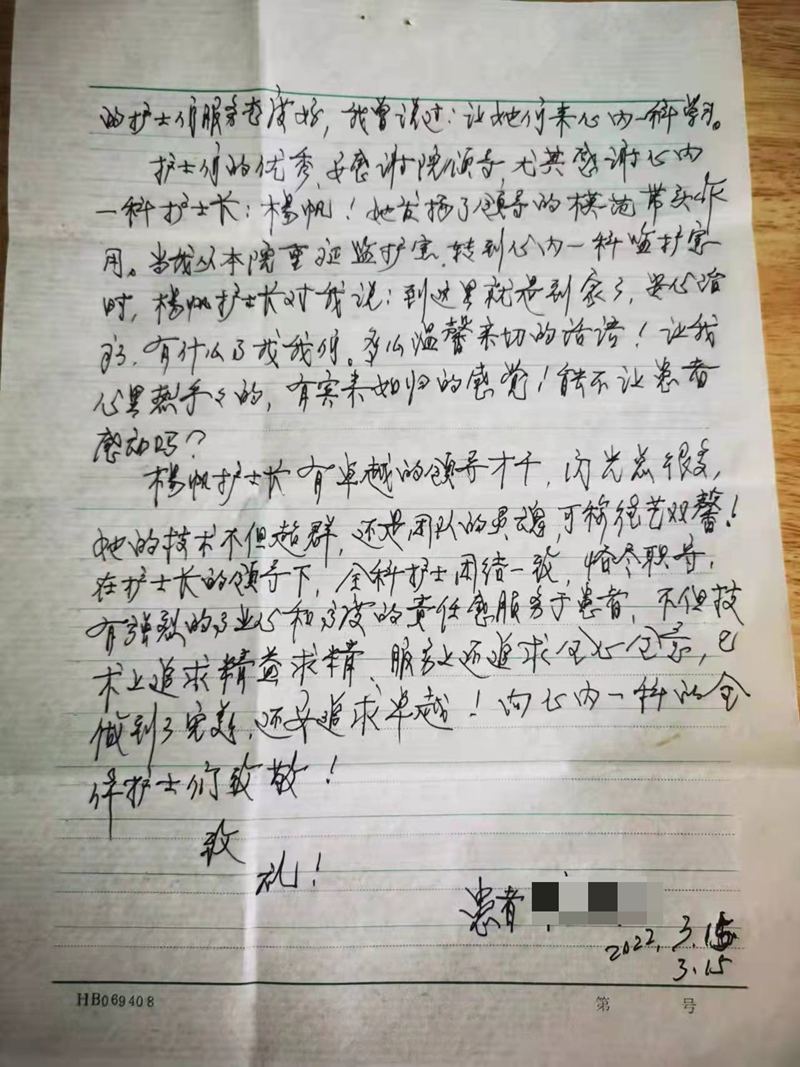 的护士们服务态度好，我曾说过：让她们来心内一科学习。
护士们的优秀，要感谢院领导，尤其感谢心内
一科护士长：杨帆！她发扬了领导的模范带头作
用。当我从本院重症监护室，转到心内一科监护室
时，杨帆护士长对我说：到这里就是到家了，安心治
疗，有什么事找我们。多么温馨亲切的话语！让我
心里热乎乎的，有宾来如归的感觉！能不让患者
感动吗？
杨帆护士长有卓越的领导才干，闪光点很多，
她的技术不但超群，还是团队的灵魂，可称德艺双馨！
在护士长的领导下，全科护士团结一致，恪尽职守，
有强烈的事业心和高度的责任感服务于患者，不但技
术上追求精益求精，服务上还追求全心全意，已
做到了完美，还要追求卓越！向心内一科的全
体护士们致敬！
致
礼！
患者
2022.3.15
3.15
HB069408 第 号